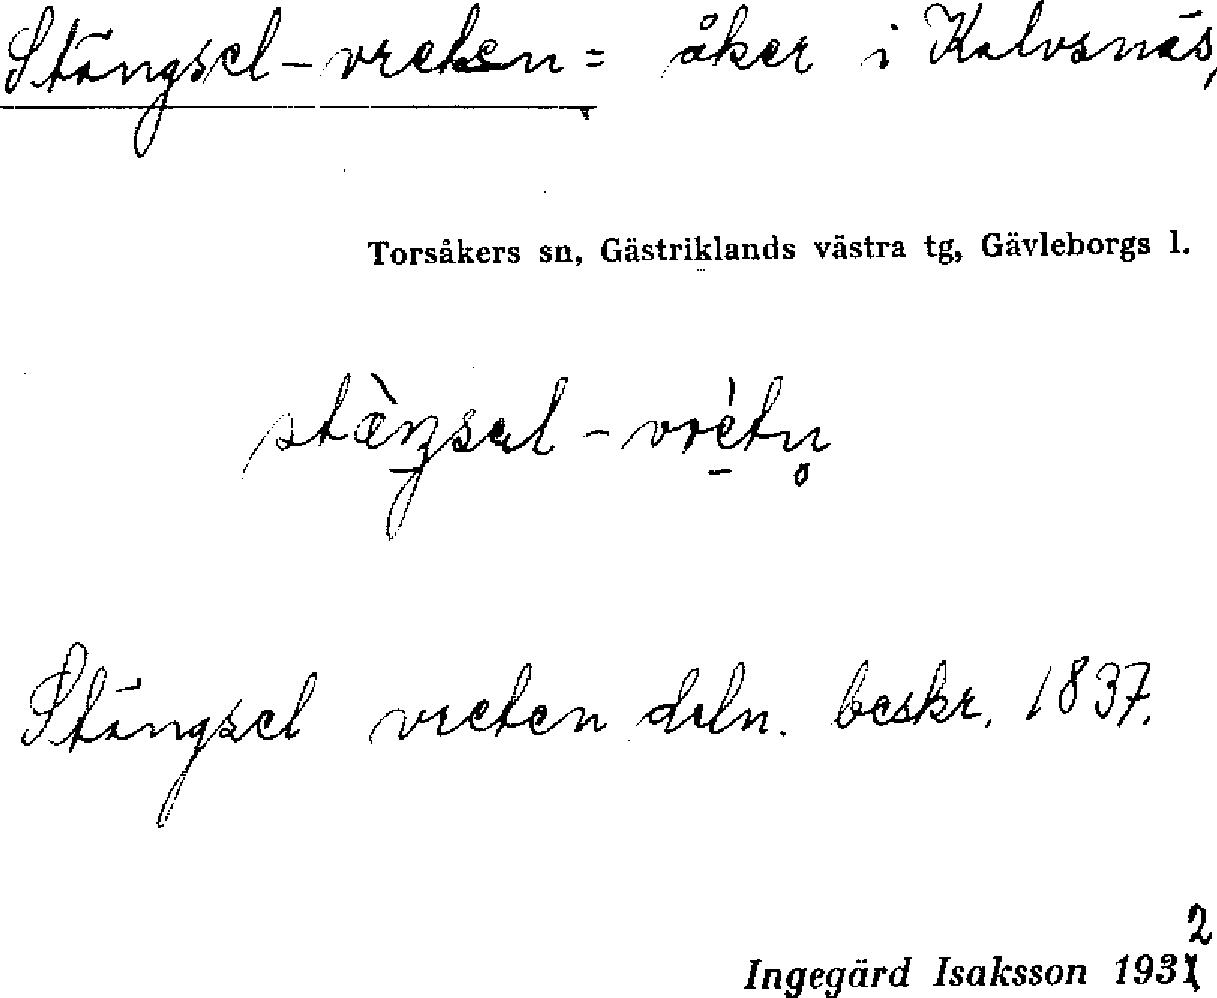 Stängsel-vreten = åker i Kalvsnäs,
Torsåkers sn, Gästriklands västra tg, Gävleborgs l.
stæ̀ŋsəl - vré̱tn̥
Stängsel vreten deln. beskr. 1837.
Ingegärd Isaksson 1932